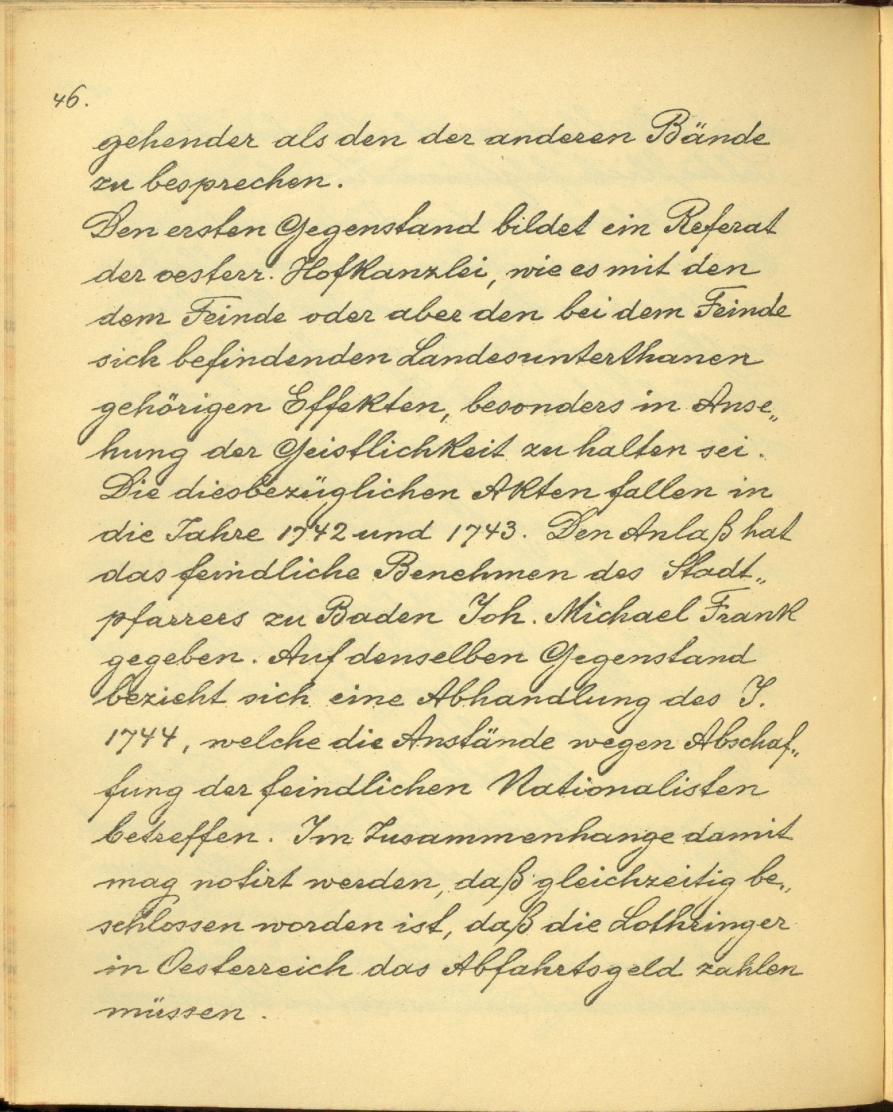 46.
gehender als den der anderen Bände
zu besprechen.
Den ersten Gegenstand bildet ein Referat
der oesterr. Hofkanzlei, wie es mit den
dem Feinde oder aber den bei dem Feinde
sich befindenden Landesunterthanen
gehörigen Effekten, besonders in Anse„
hung der Geistlichkeit zu halten sei.
Die diesbezüglichen Akten fallen in
die Jahre 1742 und 1743. Den Anlaß hat
das feindliche Benehmen des Stadt„
pfarrers zu Baden Joh. Michael Frank
gegeben. Auf denselben Gegenstand
bezieht sich eine Abhandlung des J.
1744, welche die Anstände wegen Abschaf„
fung der feindlichen Nationalisten
betreffen. Im Zusammenhange damit
mag notirt werden, daß gleichzeitig be„
schlossen worden ist, daß die Lothringer
in Oesterreich das Abfahrtsgeld zahlen
müssen.